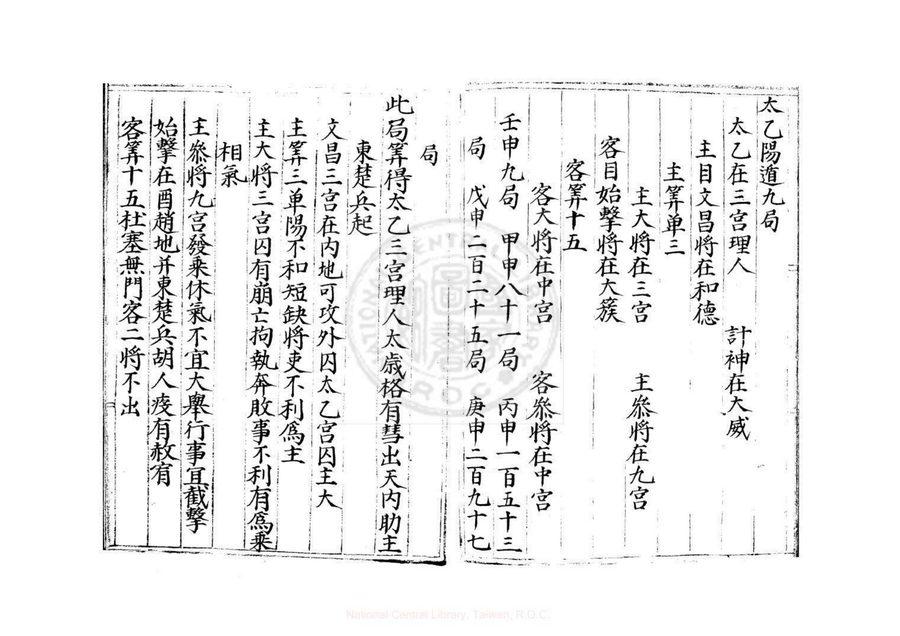 太乙陽遁九局
太乙在三宮理人　計神在大威
主目文昌將在和德
主筭单三
主大將在三宮　主叅將在九宮
客目始擊將在大簇
客筭十五
客大將在中宮　客叅將在中宮
壬申九局　甲申八十一局　丙申一百五十三
局　戊申二百二十五局　庚申二百九十七
局
此局筭得太乙三宮理人太歲格有彗出天内助主
東楚兵起
文昌三宮在内地可攻外囚太乙宮囚主大
主筭三单陽不和短缺將吏不利爲主
主大將三宮囚有崩亡拘執奔敗事不利有爲乘
相氣
主叅將九宮發乘休氣不宜大舉行事宜截擊
始擊在酉趙地并東楚兵胡人疫有赦宥
客筭十五杜塞無門客二將不出
National Central Library, Taiwan, R.O.C.